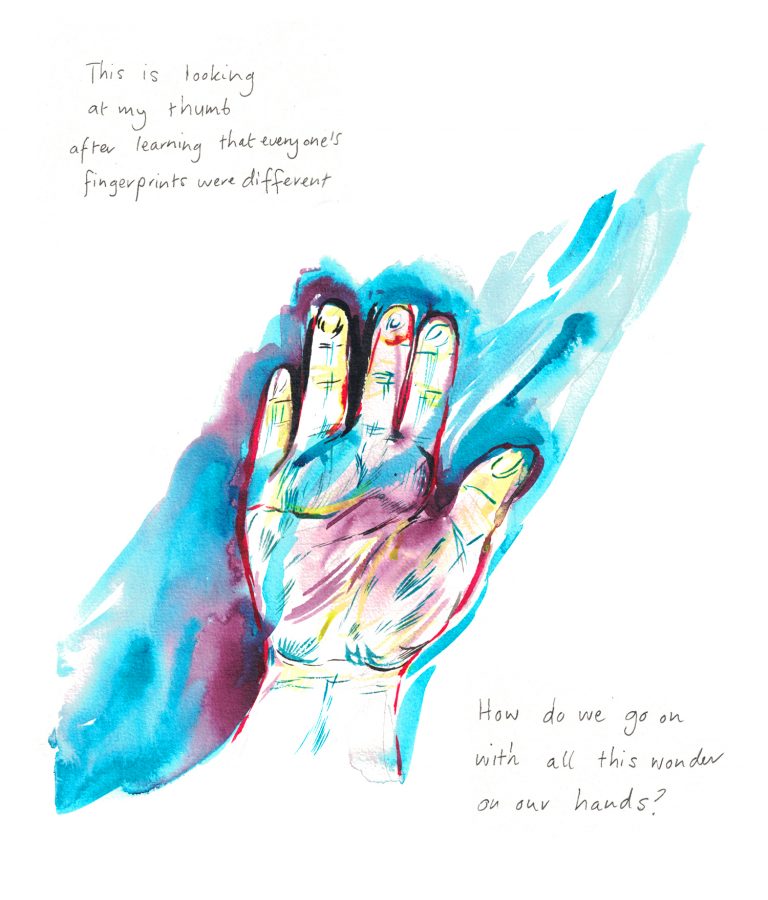 This is looking
at my thumb
after learning that everyone's
fingerprints were different
How do we go on
with all this wonder
on our hands?